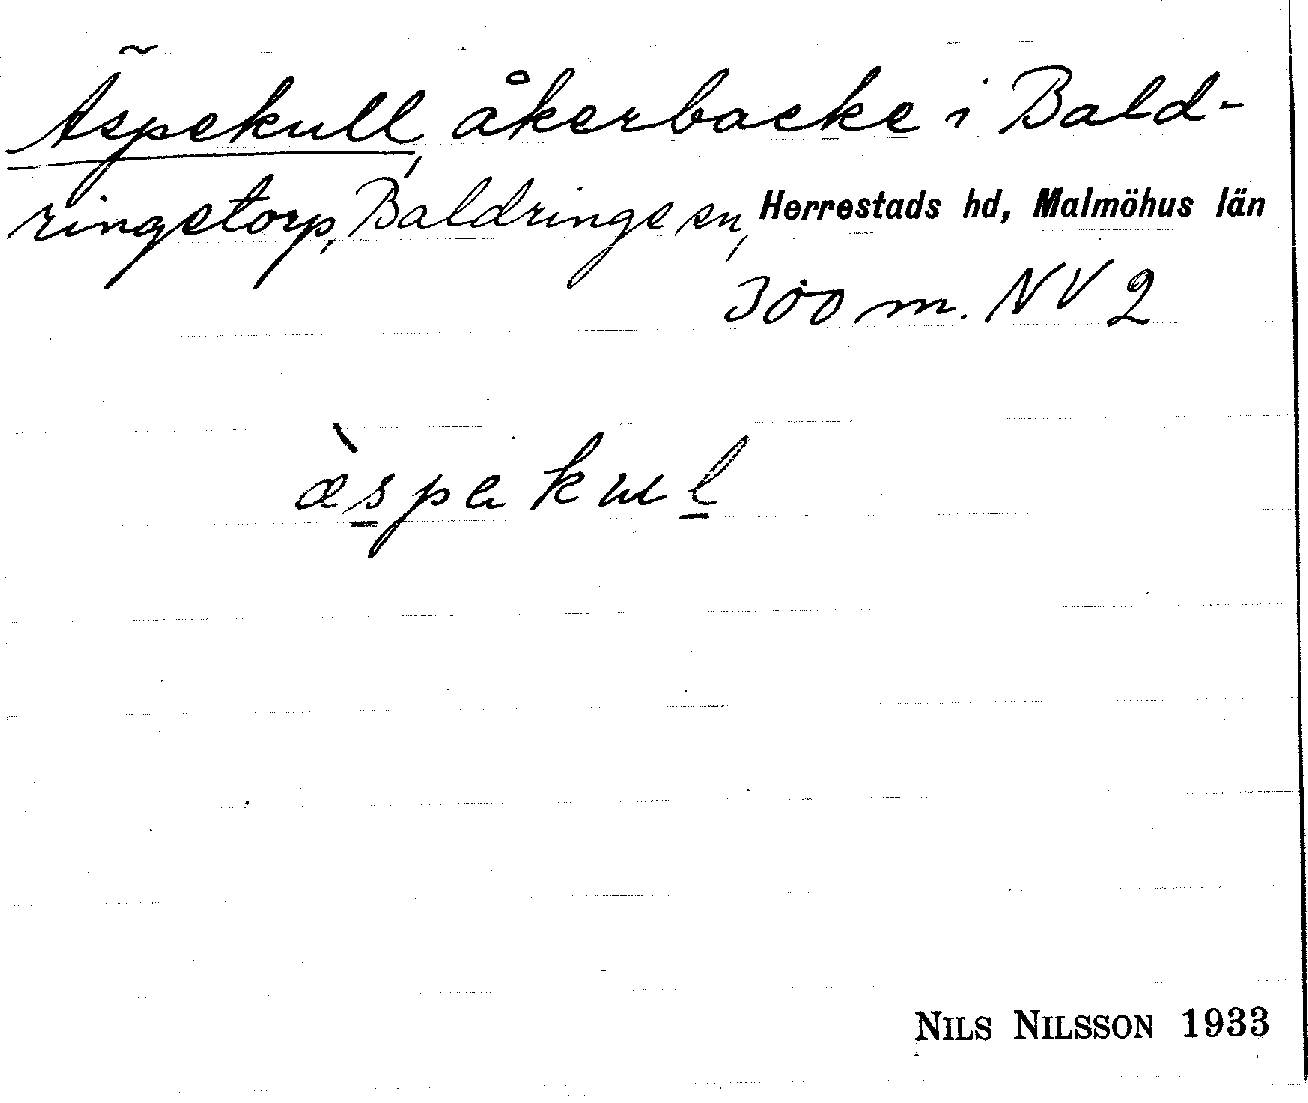 Äspekull, åkerbacke i Bald-
ringstorp, Baldringe sn, Herrestads hd, Malmöhus län
300 m. NV 2
æ̀spekul
NILS NILSSON 1933